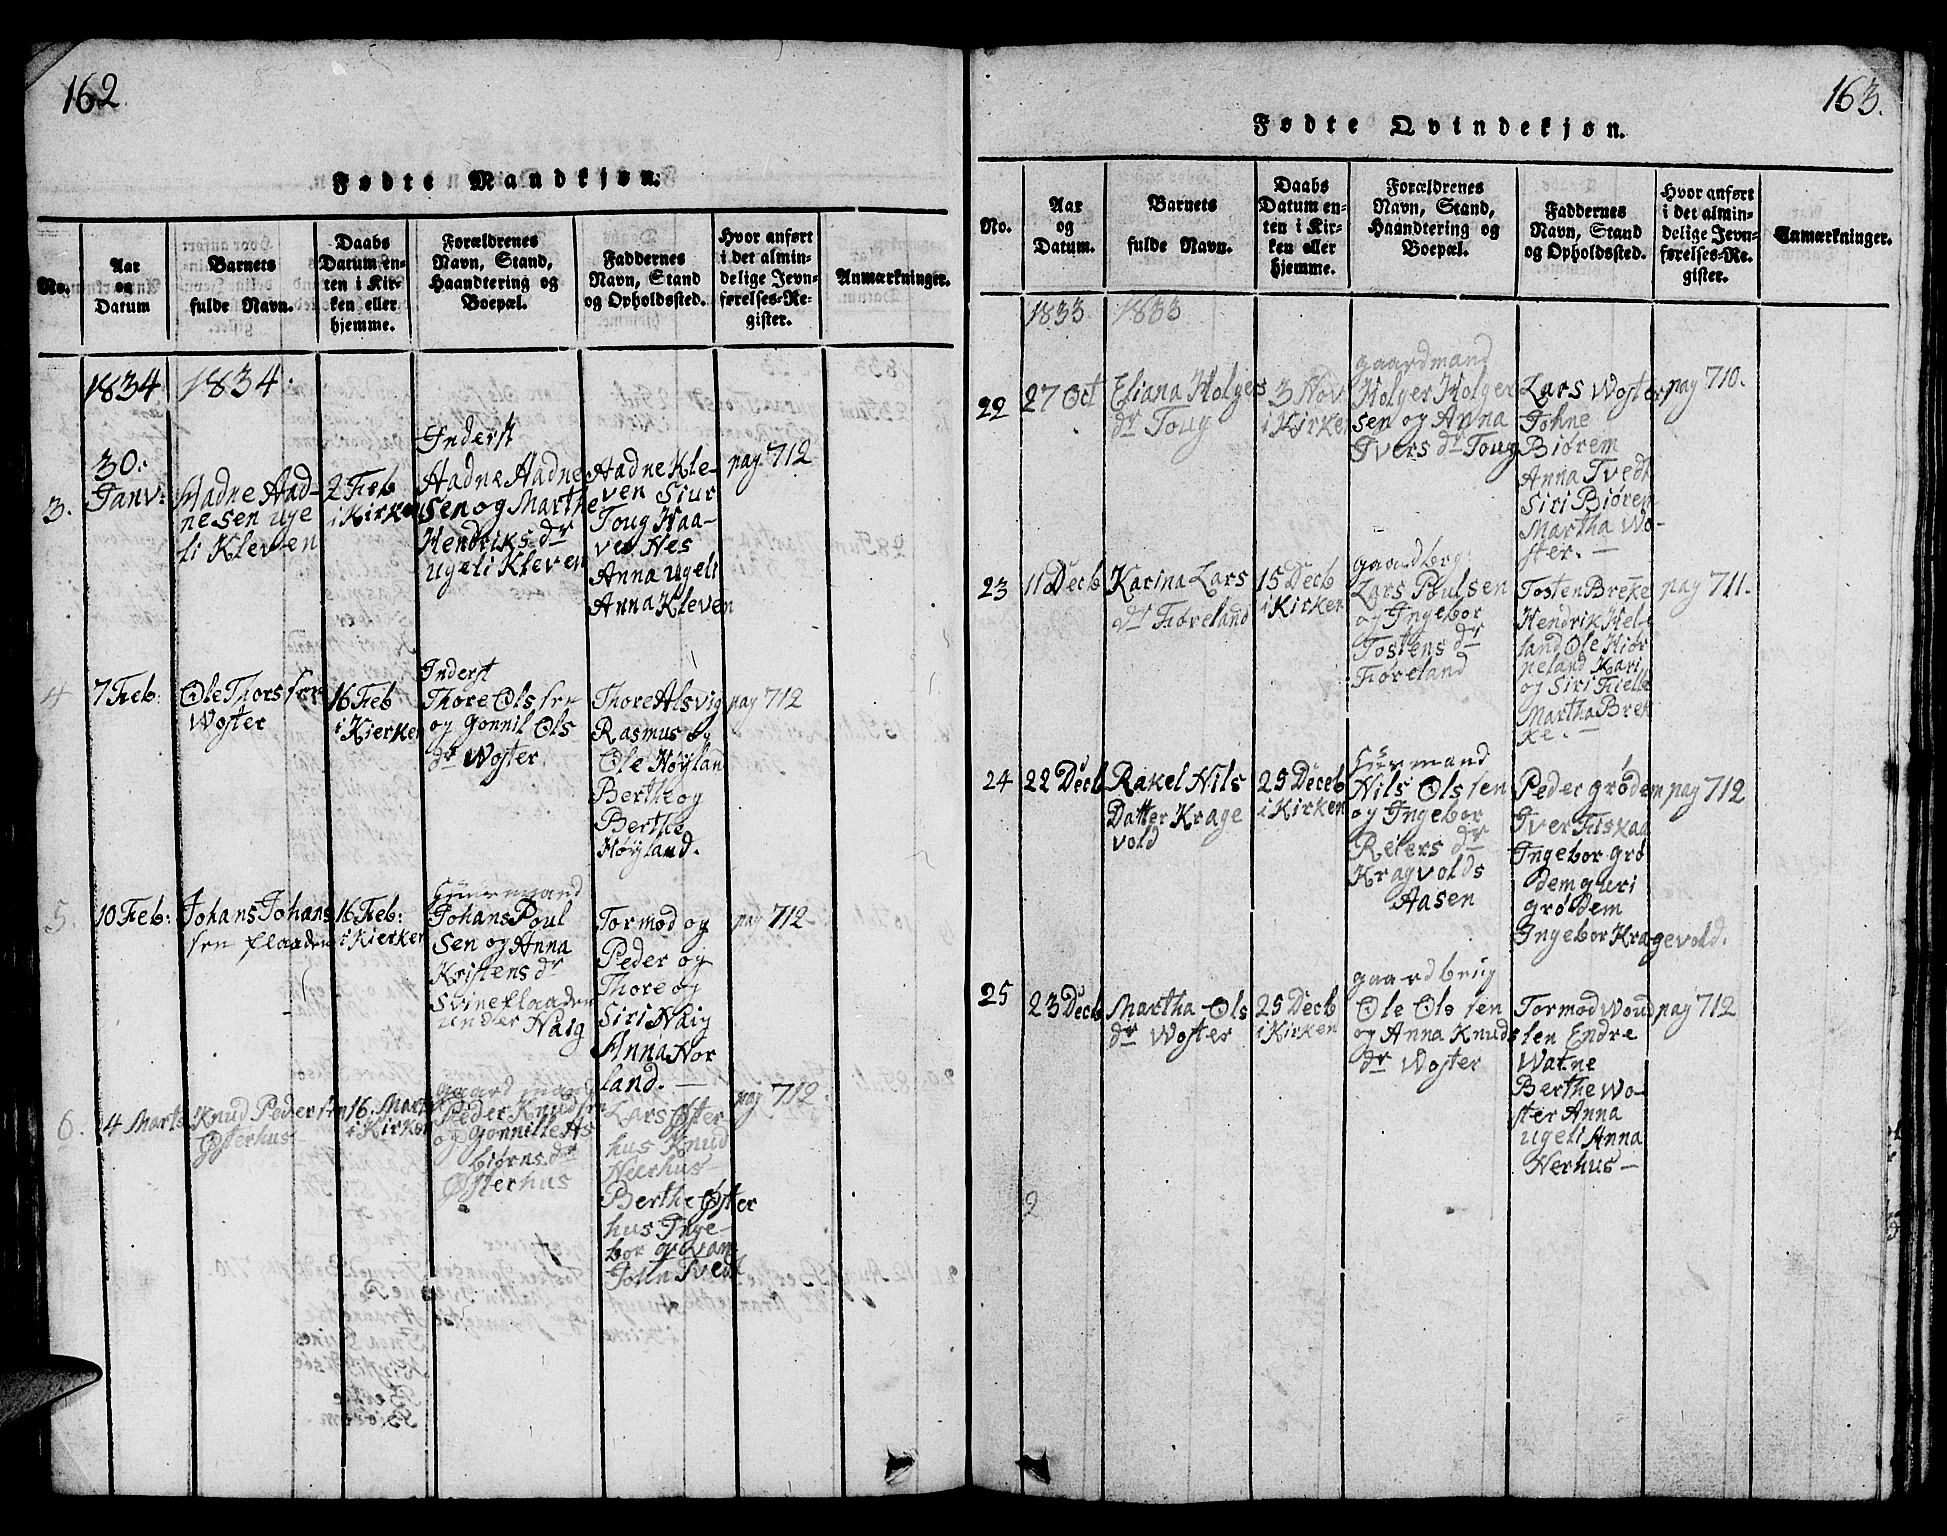 162
Fødte Mandkjøn.
No.
Aar
og
Datum
Barnets
fulde Navn.
Daabs
Datum en-
ten i Kir-
ken eller
hjemme.
Forældrenes
Navn, Stand,
Haandtering og
Boepæl.
Faddernes
Navn, Stand
og Opholdssted.
Hvor anført
i det almin-
delige Jevn-
førelses-Re-
gister.
Anmærkninger.
1834
1834
3.
30.
Janv:
Aadne Aad-
nesen uge
li Kleven
2 Feb
i Kirken
Inderst
Aadne Aadne
sen og Marthe
Hendriks dr
ugeli Kleven
Aadne Kle-
ven Siur
Toug Haa-
ver Nes
Anna ugeli
Anna Kleven
pag. 712
4
7 Feb:
Ole Thorssen
Woster
16 Feb
i Kierken
Inderst
Thore Olssen
og Gonnil Ols
dr Woster.
Thore Alsvig
Rasmus og
Ole Høyland
Berthe og
Berthe
Høyland.
pag 712
5.
10 Feb:
Johans Johans
sen flaaden
16 Feb:
i Kierken
Huusmand
Johans Poul
sen og Anna
Kristens dr
Svineflaaden
under Haig
Tormod og
Peder og
Thore og
Siri Haig
Anna Nor
land. —
pag 712
6.
4 Marts
Knud Pedersen
Østerhus
16 Marts
i Kirken
gaardmand
Peder Knudsen
og Gonnille As
biørns dr
Østerhus
Lars Øster
hus Knud
Neerhus
Berthe Øster
hus Inge-
bor
John Tvedt
pag 712
163.
Fødte Qvindekjøn.
No.
Aar
og
Datum.
Barnets
fulde Navn.
Daabs
Datum en-
ten i Kir-
ken eller
hjemme.
Forældrenes
Navn, Stand,
Haandtering og
Boepæl.
Faddernes
Navn, Stand
og Opholdssted.
Hvor anført
i det almin-
delige Jevn-
førelses-Re-
gister.
Anmærkninger.
1833
1833
22
27 Oct
Eliana Holgers
dr Toug
3 Nov
i Kirken
gaardmand
Holger Holger
sen og Anna
Ivers dr Toug
Lars Woster
Johne
Biørem
Anna Tvedt
Siri Biørem
Martha Wo-
ster. —
pag 710.
23
11 Decb
Karina Lars
dr Fiøreland
15 Decb
i Kirken
gaardbrg:
Lars Poulsen
og Ingebor
Tostens dr
Fiøreland
Tosten Breke
Hendrik Hel-
land Ole Hiør
neland Kari
og Siri Fielle
Martha Brek
ke. —
pag 711.
24
22 Decb
Rakel Nils
Datter Krage
vold
25 Deceb
i Kirken
Huusmand
Nils Olssen
og Ingebor
Reiers dr
Kragvolds
Aasen
Peder grødem
Iver Fiskaa
Ingebor grø
dem guri
grødem
Ingebor Kragevold.
pag 712
25
23 Decb
Martha Ols
dr Woster
25 Decb
i Kirken
gaardbrug
Ole Olssen
og Anna Knuds
dr Woster
Tormod Woud
sten Endre
Watne
Berthe Wo-
ster Anna
ugeli Anna
Nerhus —
pag 712
2